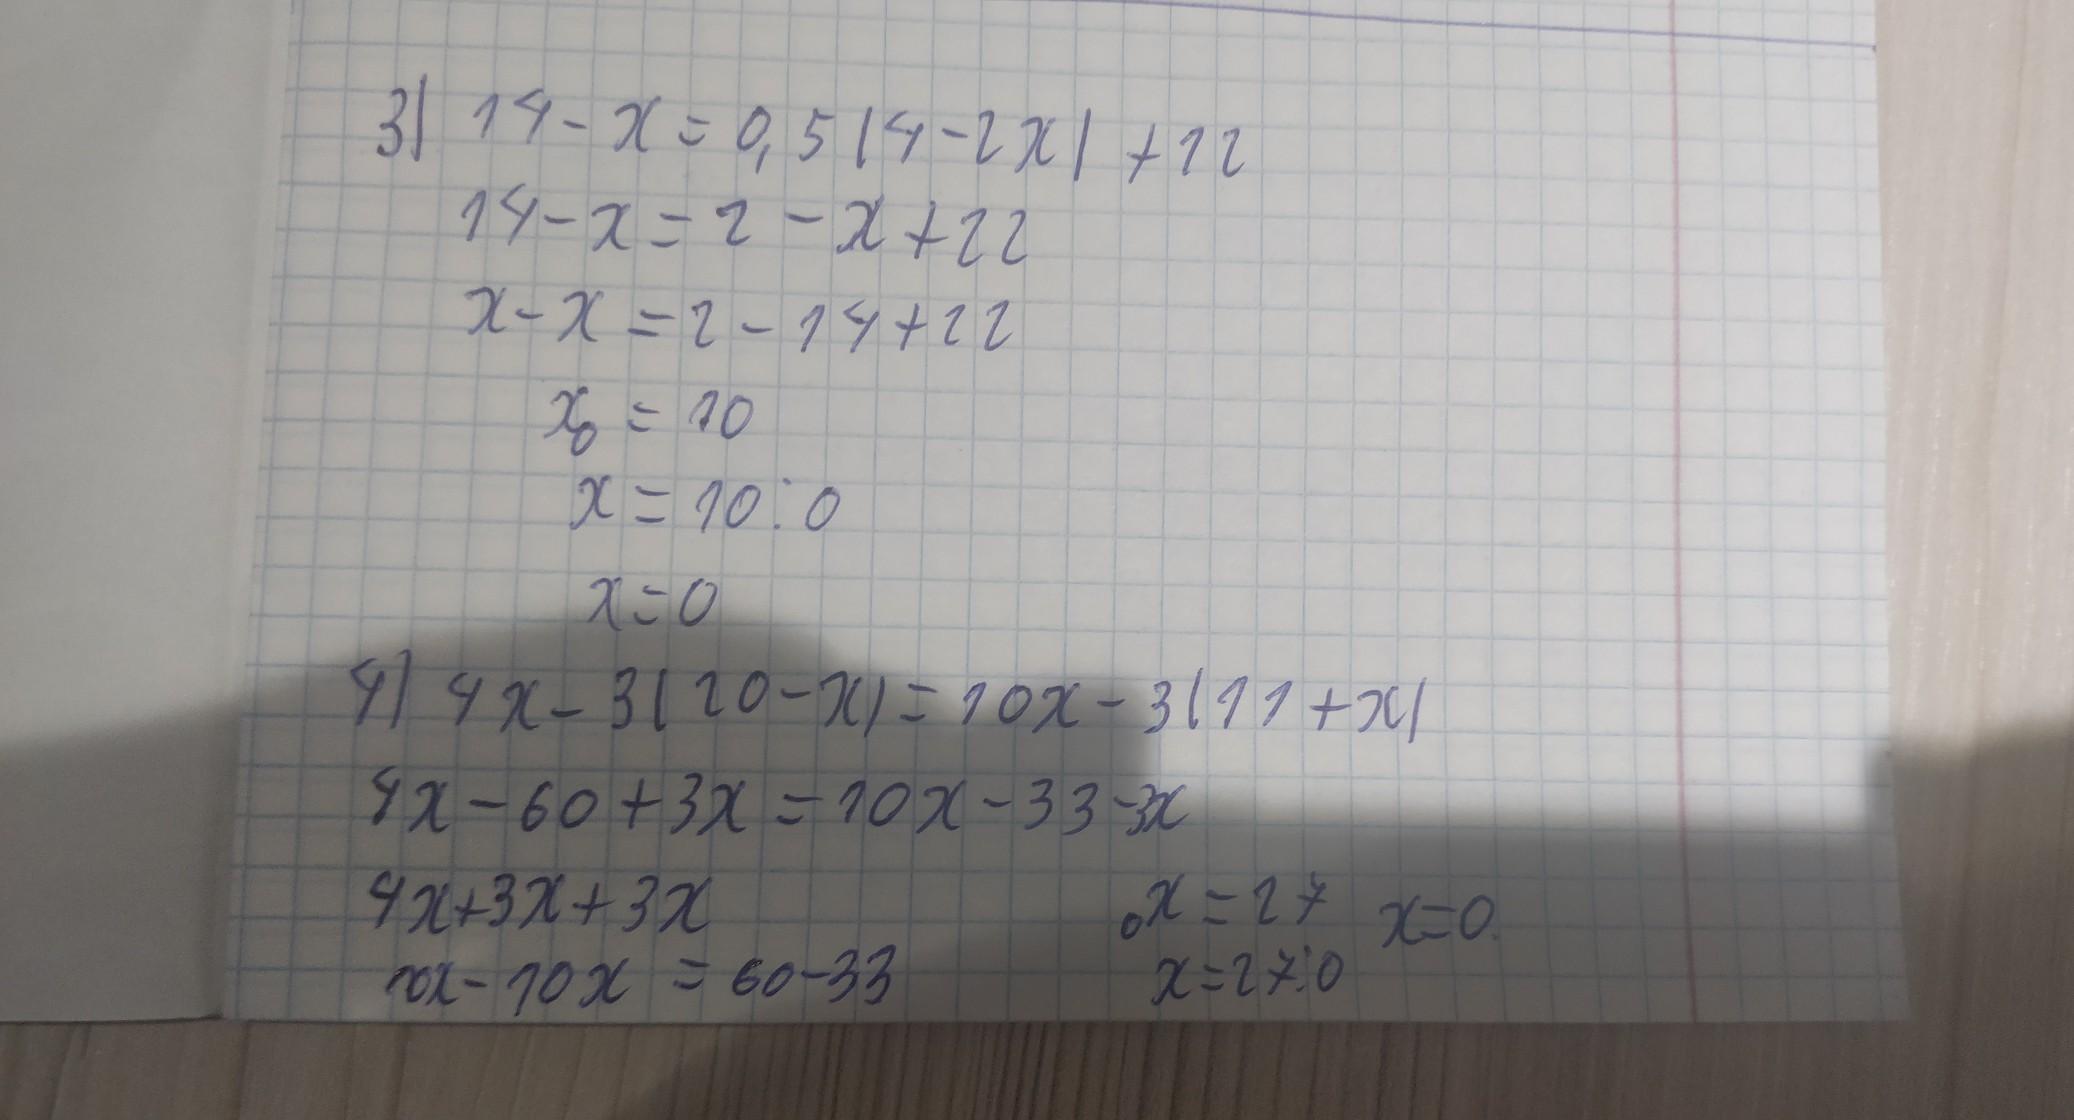 3) 14-x=0,5(4-2x)+12
14-x=2-x+22
x-x=2-14+22
x0=10
x=10:0
x=0
4) 4x-3(20-x)=10x-3(11+x)
4x-60+3x=10x-33-3x
4x+3x+3x
10x-10x=60-33
0x=27 x=0
x=27:0